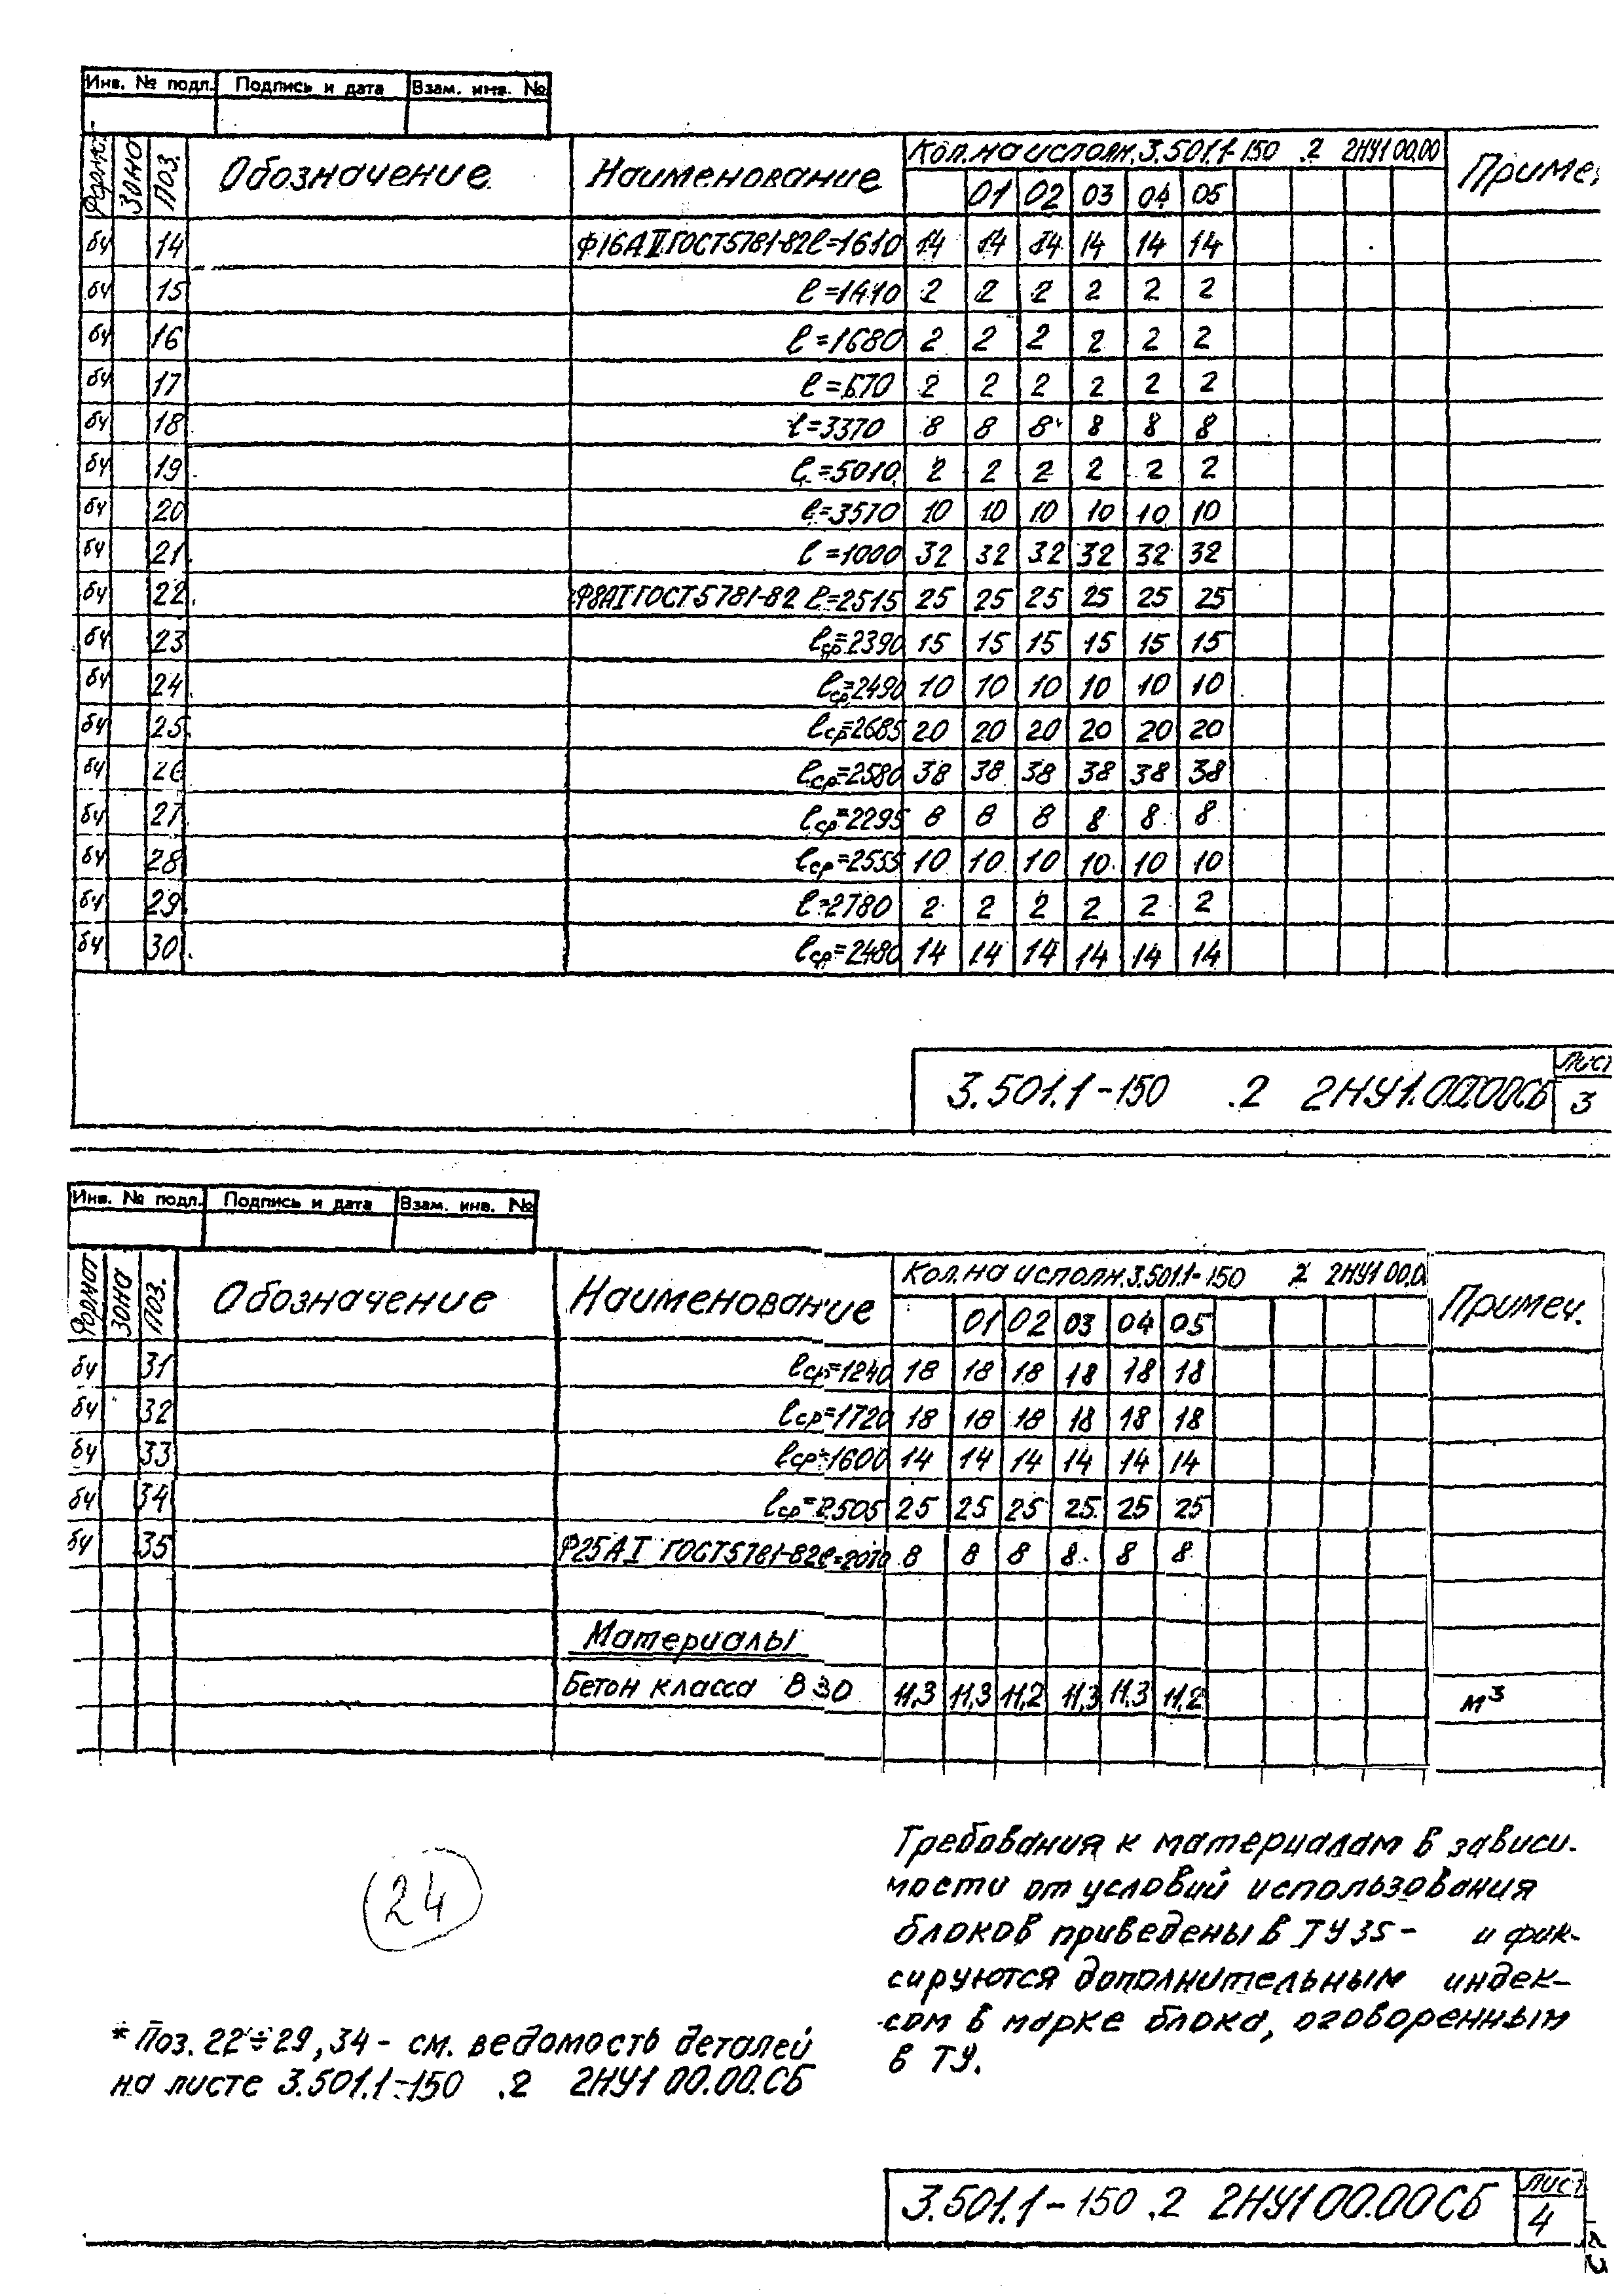 Инв. № подл. Подпись и дата Взам. инв. №
Формат Зона Поз. Обозначение Наименование Кол. на исполн. 3.501.1-150 .2 2НУ1 00.00 Примеч
01 02 03 04 05
бч 14 Ф16АII ГОСТ5781-82 ℓ=1610 14 14 14 14 14 14
бч 15 ℓ=1410 2 2 2 2 2 2
бч 16 ℓ=1680 2 2 2 2 2 2
бч 17 ℓ=670 2 2 2 2 2 2
бч 18 ℓ=3370 8 8 8 8 8 8
бч 19 ℓ=5010 2 2 2 2 2 2
бч 20 ℓ=3570 10 10 10 10 10 10
бч 21 ℓ=1000 32 32 32 32 32 32
бч 22 Ф8АI ГОСТ5781-82 ℓ=2515 25 25 25 25 25 25
бч 23 ℓср=2390 15 15 15 15 15 15
бч 24 ℓср=2490 10 10 10 10 10 10
бч 25 ℓср=2685 20 20 20 20 20 20
бч 26 ℓср=2580 38 38 38 38 38 38
бч 27 ℓср=2295 8 8 8 8 8 8
бч 28 ℓср=2555 10 10 10 10 10 10
бч 29 ℓ=2780 2 2 2 2 2 2
бч 30 ℓср=2480 14 14 14 14 14 14
3.501.1-150 .2 2НУ1.00.00СБ Лист 3
Инв. № подл. Подпись и дата Взам. инв. №
Формат Зона Поз. Обозначение Наименование Кол. на исполн. 3.501.1-150 2 2НУ1 00.0 Примеч.
01 02 03 04 05
бч 31 ℓср=1240 18 18 18 18 18 18
бч 32 ℓср=1720 18 18 18 18 18 18
бч 33 ℓср=1600 14 14 14 14 14 14
бч 34 ℓср=2505 25 25 25 25 25 25
бч 35 Ф25АI ГОСТ5781-82 ℓ=2070 8 8 8 8 8 8
Материалы
Бетон класса В30 11,3 11,3 11,2 11,3 11,3 11,2 м³
24
* Поз. 22÷29, 34 - см. ведомость деталей
на листе 3.501.1-150 .2 2НУ1 00.00.СБ
Требования к материалам в зависи-
мости от условий использования
блоков приведены в ТУ35- и фик-
сируются дополнительным индек-
сом в марке блока, оговоренным
в ТУ.
3.501.1-150 .2 2НУ1 00.00СБ Лист 4